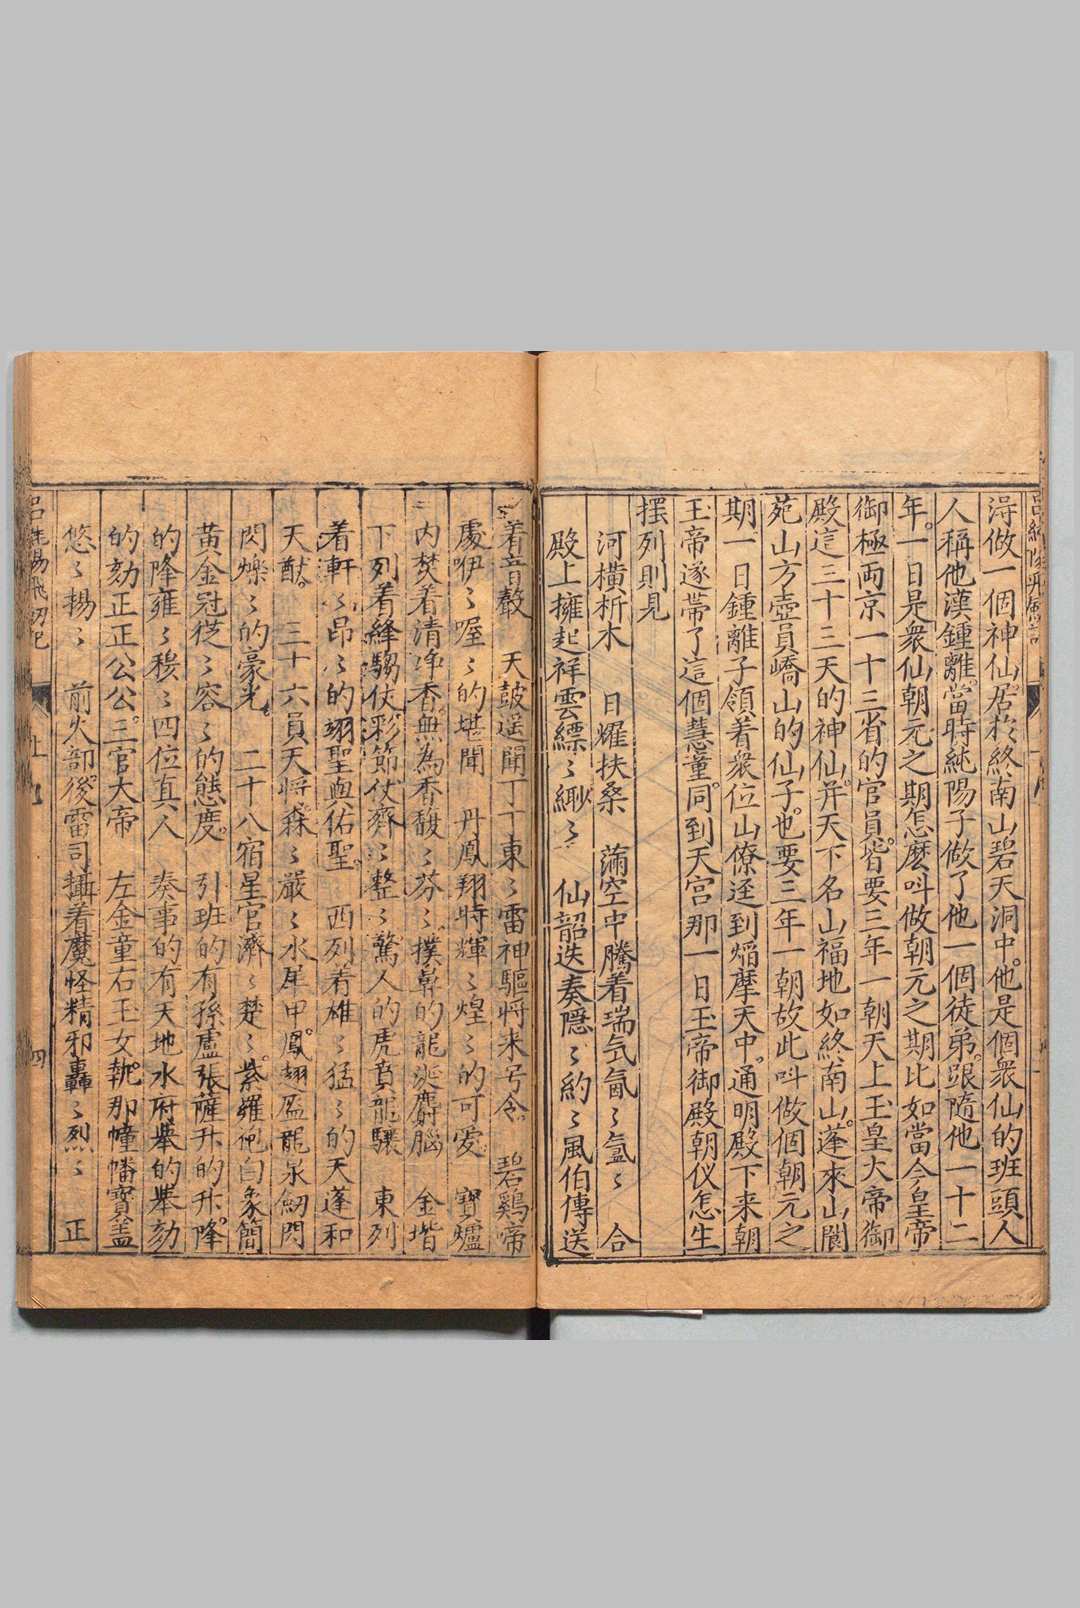 淂做一個神仙。居於終南山碧天洞中。他是個衆仙的班頭人
人稱他漢鍾離。當時純陽子做了他一個徒弟。跟隨他一十二
年。一日是衆仙朝元之期怎麽叫做朝元之期比如當今皇帝
御極両京一十三省的官員。皆要三年一朝天上玉皇大帝御
殿這三十三天的神仙。并天下名山福地如終南山。蓬來山閬
苑山方壺員嶠山的仙子。也要三年一朝故此叫做個朝元之
期一日鍾離子領着衆位山僚逕到熖摩天中。通明殿下来朝
玉帝遂帶了這個慧童。同到天宫那一日玉帝御殿朝仪怎生
擺列則見
河橫析木　日耀扶桑　蒲空中騰着瑞气氤〻氲〻　合
殿上擁起祥雲縹〻緲〻　仙韶迭奏隱〻約〻風伯傳送
着音聲　天鼓遥聞丁丁東〻雷神驅將来号令　碧鷄啼
處咿〻喔〻的堪聞　丹鳳翔時輝〻煌〻的可愛　寶爐
内焚着清净香無為香馥〻芬〻撲鼻的龍涎麝腦　金堦
下列着絳騶仗彩節仗齊〻整〻驚人的虎賁龍驤　東列
着軒〻昂〻的翊聖與佑聖。　西列着雄〻猛〻的天蓬和
天猷。　三十六員天將森〻嚴〻水犀甲鳳翅盔龍泉劒閃
閃爍〻的豪光。　二十八宿星官濟〻楚〻。紫羅袍白象簡
黃金冠從〻容〻的態度。　引班的有孫盧張薩升的升。降
的降雍〻穆〻四位真人　奏事的有天地水府舉的舉劾
的劾正正公公。三官大帝　左金童右玉女。執那幢幡寶盖
悠〻揚〻　前火部。後雷司攝着魔怪精邪轟〻烈〻　正
上
四